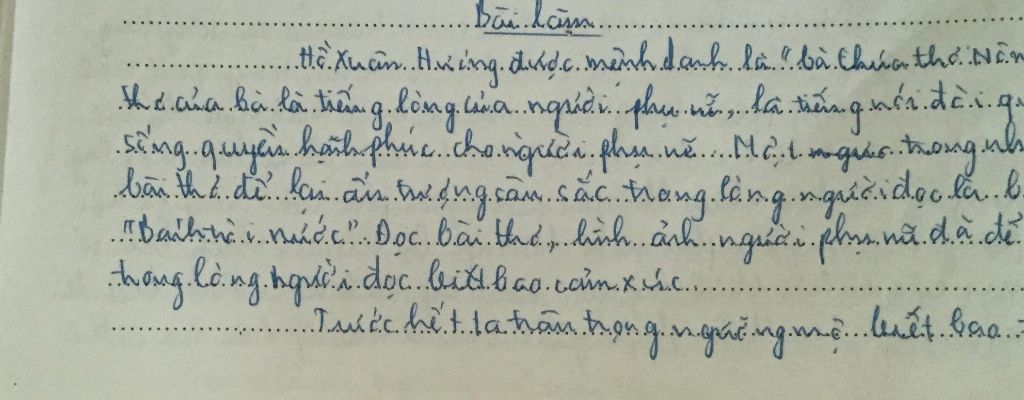 Bài làm
Hồ Xuân Hương được mệnh danh là "bà chúa thơ Nôm
thơ của bà là tiếng lòng của người phụ nữ, là tiếng nói đòi qu
sống quyền hạnh phúc cho người phụ nữ. Một trong nh
bài thơ để lại ấn tượng sâu sắc trong lòng người đọc là b
"Bánh trôi nước". Đọc bài thơ, hình ảnh người phụ nữ đã để
trong lòng người đọc biết bao cảm xúc
Trước hết ta trân trọng ngưỡng mộ biết bao